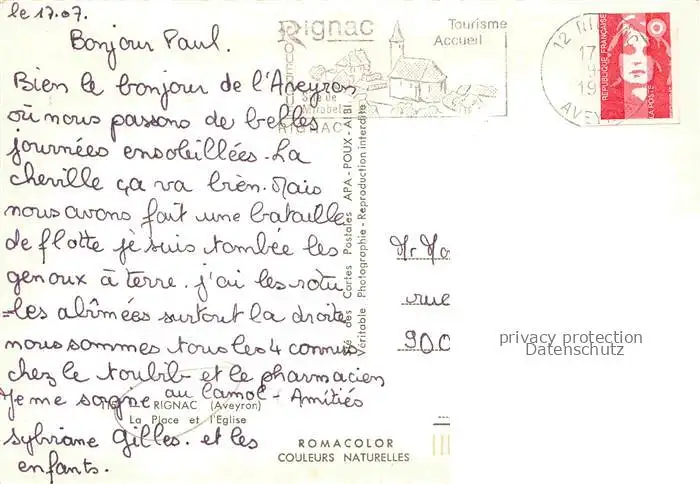 le 17.07.
Bonjour Paul.
Bien le bonjour de l'Aveyron
où nous passons de belles
journées ensoleillées. La
cheville ça va bien. Mais
nous avons fait une bataille
de flotte je suis tombée les
genoux à terre. j'ai les rotu
-les abîmées surtout la droite
nous sommes tous les 4 connus
chez le toubib et le pharmacien
Je me soigne au Camol - Amitiés
Sylviane Gilles. et les
enfants.
Rignac
Tourisme
Accueil
RIGNAC
12
17
19
AVEYR
REPUBLIQUE FRANÇAISE
LA POSTE
des Cartes Postales APA-POUX-ALBI
Véritable Photographie - Reproduction interdite
Mr
rue
900
privacy protection
Datenschutz
RIGNAC (Aveyron)
La Place et l'Eglise
ROMACOLOR
COULEURS NATURELLES